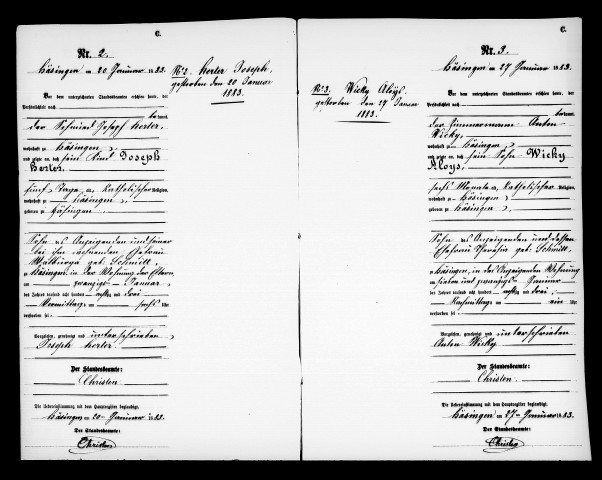 C.
Nr. 2.
Häsingen am 20 Januar 1883.
Vor dem unterzeichneten Standesbeamten erschien heute, der
Persönlichkeit nach
kannt,
der Schmied Josef Herter,
wohnhaft zu Häsingen
und zeigte an, daß sein Kind Joseph
Herter,
fünf Tage a, Katholischer Religion,
wohnhaft zu Häsingen
geboren zu Häsingen
Sohn des Anzeigenden und seiner
bei ihm wohnenden Ehefrau
Walburga geb. Schmitt
zu Häsingen in der Wohnung der Eltern
am zwanzigsten Januar
des Jahres tausend acht hundert achtzig und drei
Vormittags um sechs Uhr
verstorben sei
Vorgelesen, genehmigt und unterschrieben
Joseph Herter
Der Standesbeamte:
Christen
Die Uebereinstimmung mit dem Hauptregister beglaubigt.
Häsingen am 20 Januar 1883.
Der Standesbeamte:
Christen
N° 2. Herter Joseph,
gestorben den 20 Januar
1883.
C.
Nr. 3.
Häsingen am 27 Januar 1883.
Vor dem unterzeichneten Standesbeamten erschien heute, der
Persönlichkeit nach
kannt,
der Zimmermann Anton
Wicky,
wohnhaft zu Häsingen
und zeigte an, daß sein Sohn Wicky
Aloys,
sechs Monate a, Katholischer Religion,
wohnhaft zu Häsingen
geboren zu Häsingen
Sohn des Anzeigenden und dessen
Ehefrau Theresia geb. Schmitt
zu Häsingen, in des Anzeigenden Wohnung
am sieben und zwanzigsten Januar
des Jahres tausend acht hundert achtzig und drei
Nachmittags um ein Uhr
verstorben sei
Vorgelesen, genehmigt und unterschrieben
Anton Wicky
Der Standesbeamte:
Christen
Die Uebereinstimmung mit dem Hauptregister beglaubigt.
Häsingen am 27 Januar 1883.
Der Standesbeamte:
Christen
N° 3. Wicky Aloÿs
gestorben den 27 Januar
1883.